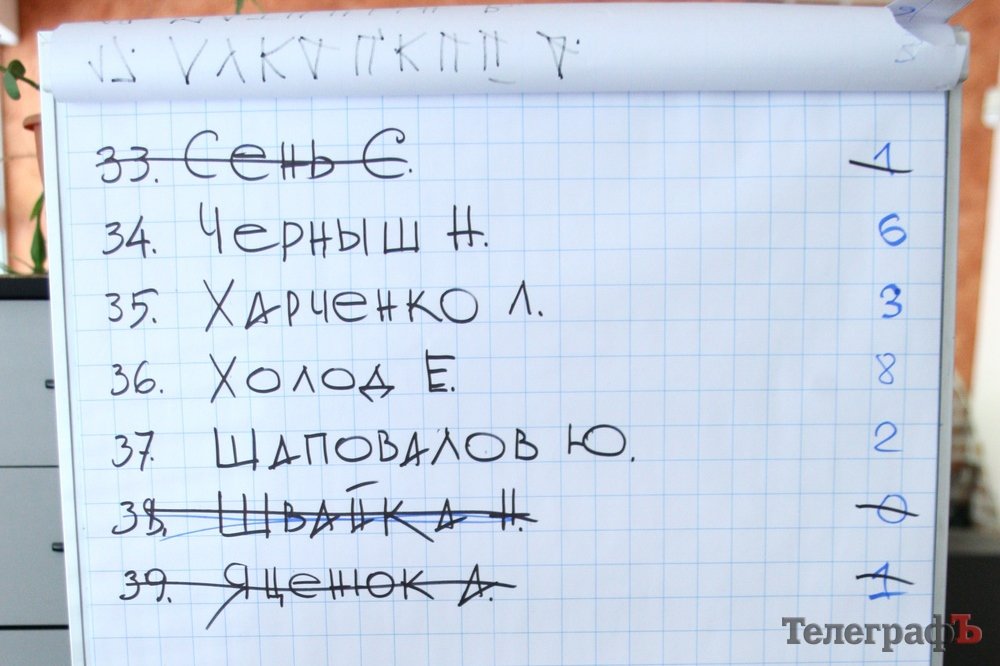 33. Сень Є. 1
34. Черныш Н. 6
35. Харченко Л. 3
36. Холод Е. 8
37. Шаповалов Ю. 2
38. Швайка Н. 0
39. Яценюк А. 1
ТелеграфЪ